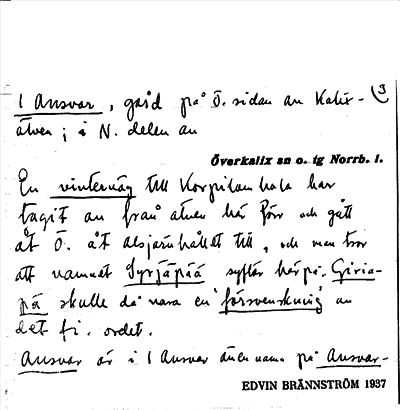 1 Ansvar, gård på Ö. sidan av Kalix- 3
älven; i N. delen av
Överkalix sn o. tg Norrb. l.
En vinterväg till Korpilombolo har
tagit av från älven här förr och gått
åt Ö. åt alsjärvhållet till, och man tror
att namnet Syrjäpää syftar härpå. Giria-
pä skulle då vara en 'försvenskning' av
det fi. ordet.
Ansvar är i 1 Ansvar även namn på Ansvar-
EDVIN BRÄNNSTRÖM 1937